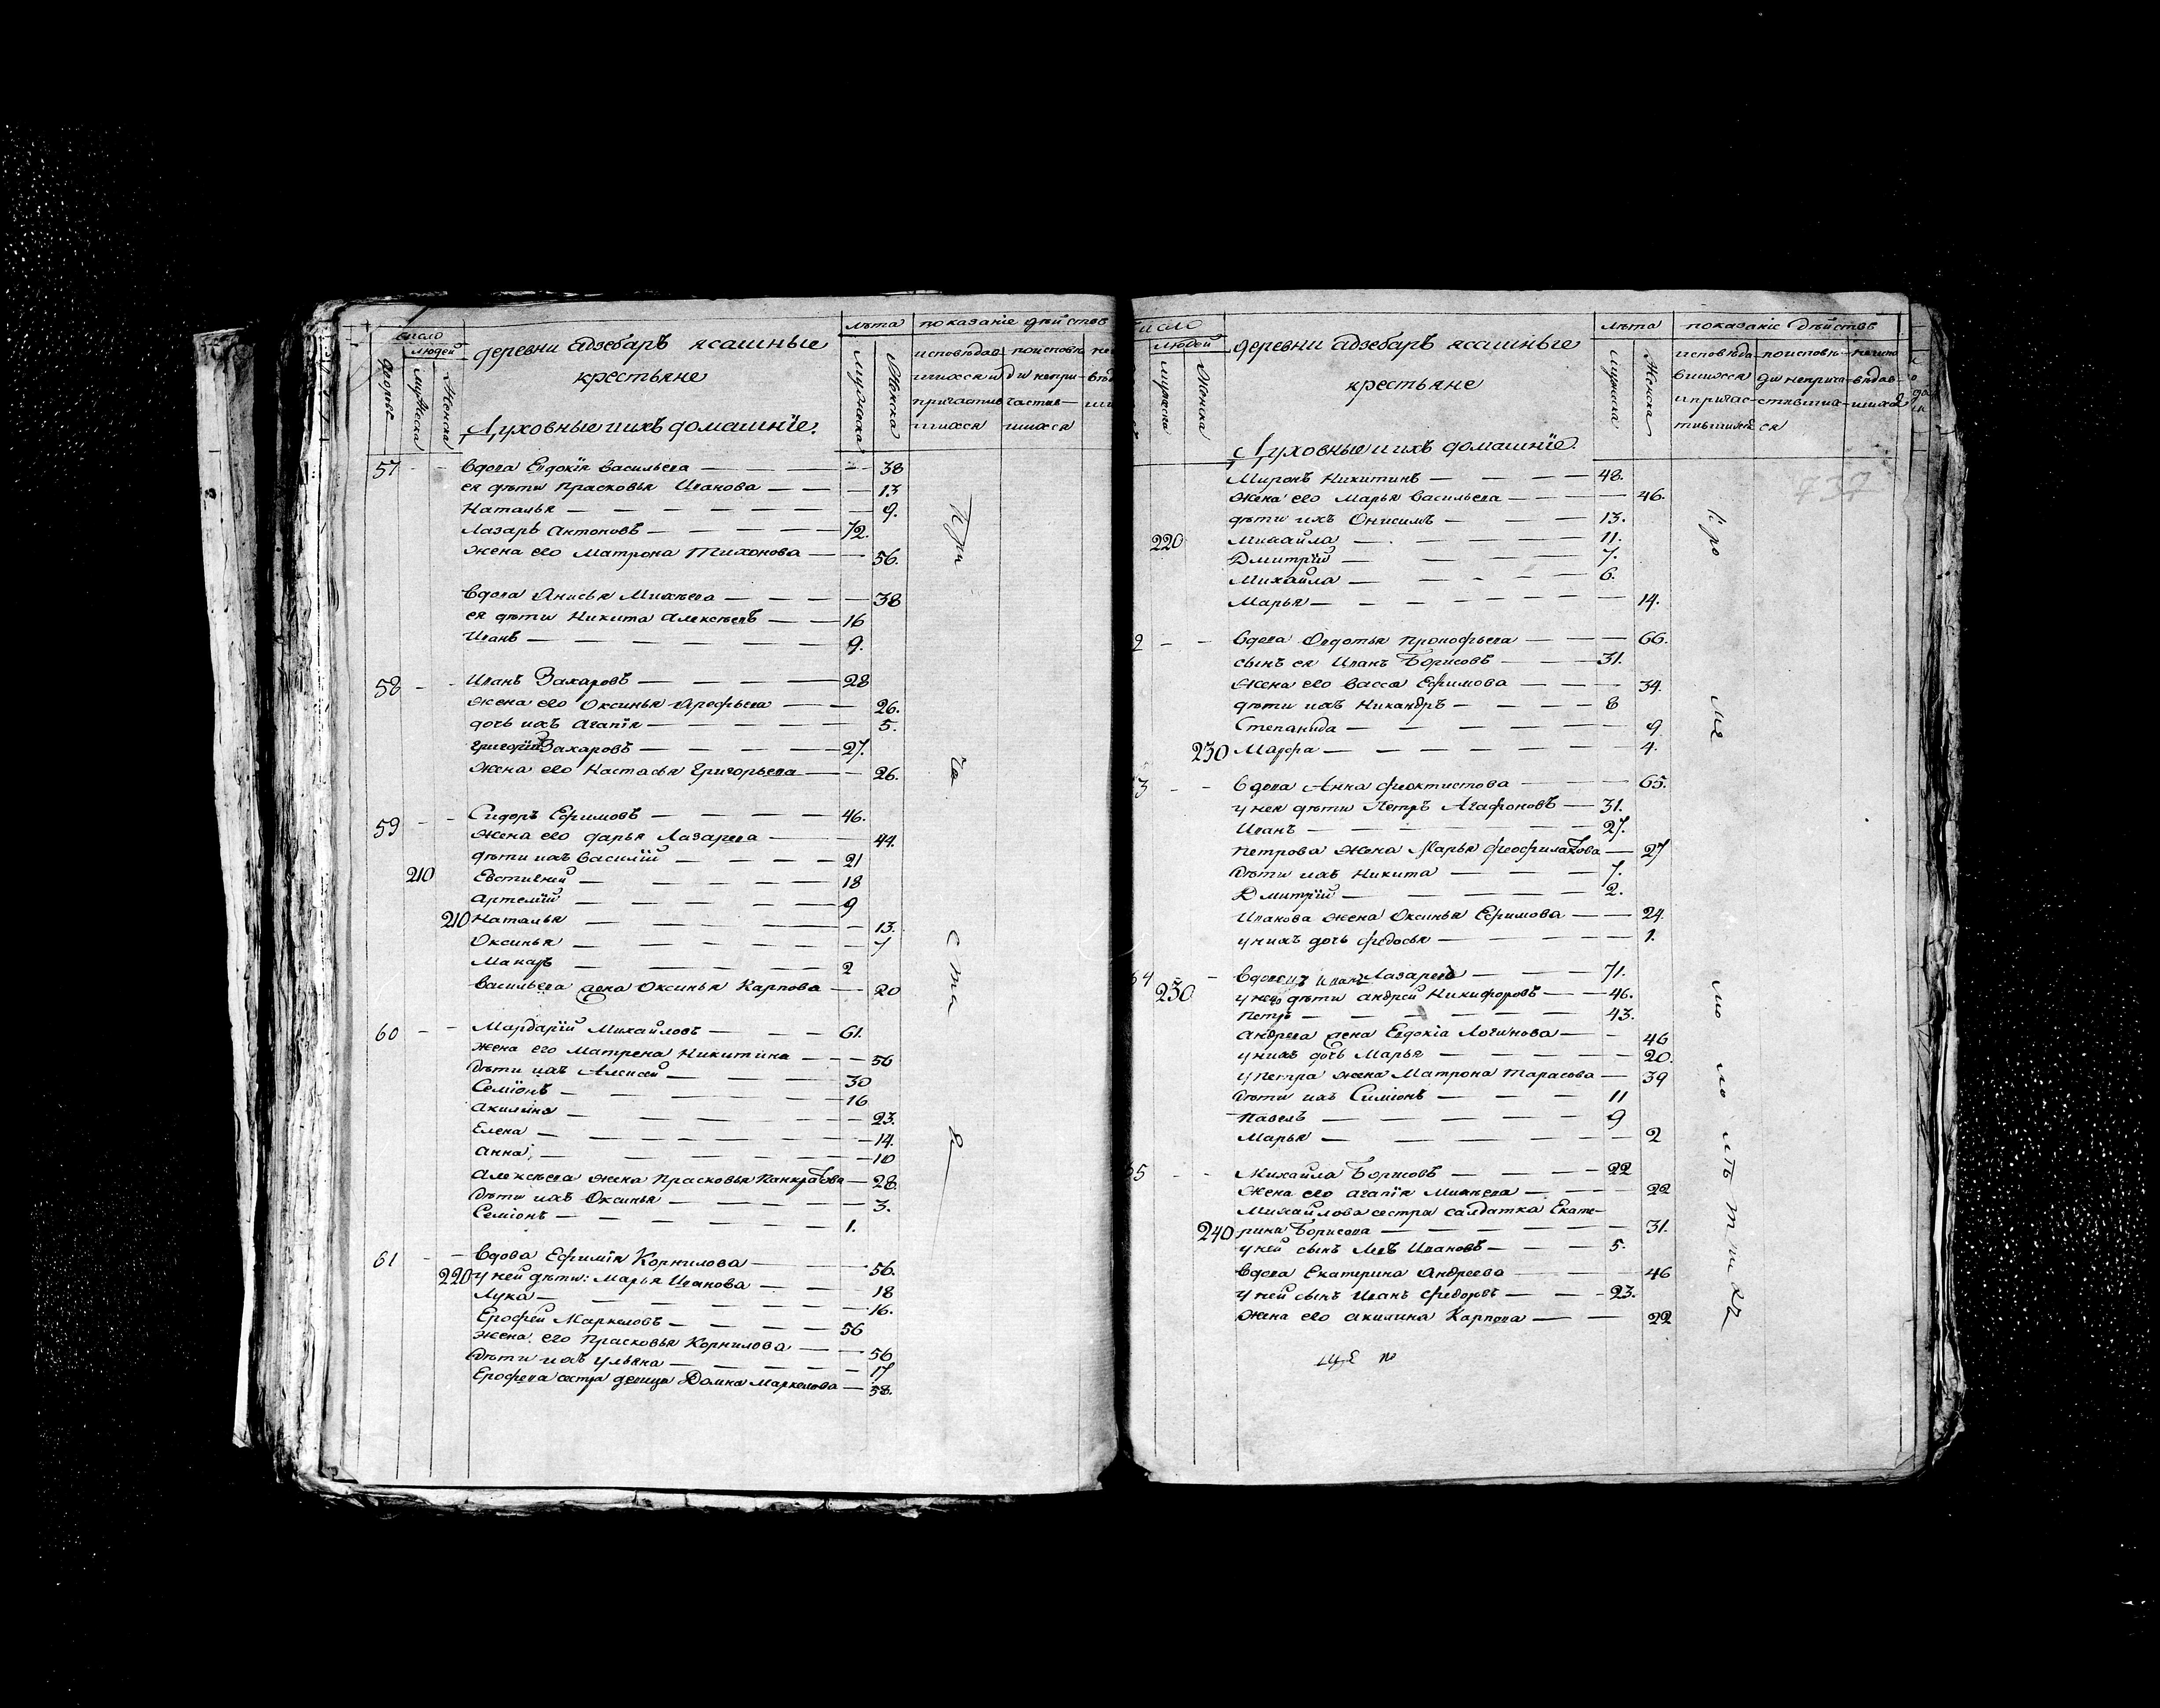 число
людей
дворовъ
Мужеска
Женска
деревни Адзебаръ ясашныѣ
крестьяне
Духовныѣ и ихъ домашнїе.
лѣта
Мужеска
Женска
показанiе дѣйствъ
исповѣдав
шихся и
причастив
шихся
по исповѣ
ди непри-
частив-
шихся
57 - - вдова Евдокїя Васильева — 38
ея дѣти Прасковья Иванова — 13
Наталья — 9.
Лазарь Антоновъ — 72.
жена его Матрона Тихонова — 56.
вдова Анисья Михѣева — 38
ея дѣти Никита Алексѣевъ — 16
Иванъ — 9.
58 - - Иванъ Захаровъ — 28
жена его Оксинья Арефьева — 26.
дочь ихъ Агапїя — 5.
Григорїй Захаровъ — 27.
жена его Настасья Григорьева — 26.
59 - - Сидоръ Ефимовъ — 46.
жена его Дарья Лазарева — 44.
дѣти ихъ Василїй — 21
210 Евстигней — 18
Артемїй — 9
210 Наталья — 13.
Оксинья — 7
Макаръ — 2
Васильева жена Оксинья Карпова — 20
60 - - Мардарїй Михайловъ — 61.
жена его Матрена Никитина — 56
дѣти ихъ Алексѣй — 30
Семїонъ — 16
Акилина — 23.
Елена — 14.
Анна — 10
Алексѣева жена Прасковья Панкратова — 28.
дѣти ихъ Оксинья — 3.
Семїонъ — 1.
61 - - вдова Ефимїя Корнилова — 56.
220 у ней дѣти: Марья Иванова — 18
Лука — 16.
Ерофей Маркеловъ — 56
жена его Прасковья Корнилова — 56
дѣти ихъ Ульяна — 17
Ерофеева сестра девица Домна Маркелова — 58.
При
ча
ста
число
людей
Мужеска
Женска
деревни Адзебаръ ясашныѣ
крестьяне
Духовныѣ и ихъ домашнїе.
лѣта
Мужеска
Женска
показанiе дѣйствъ
исповѣда-
вшихся
и причас-
тившихся
по исповѣ-
ди неприча-
стивших-
ся
неиспо
вѣдав-
шихся
737
Миронъ Никитинъ — 48.
жена его Марья Васильева — 46.
дѣти ихъ Онисимъ — 13.
220 Михайла — 11.
Дмитрїй — 7.
Михайла — 6.
Марья — 14.
2 - - вдова Овдотья Прокофьева — 66.
сынъ ея Иванъ Борисовъ — 31.
жена его Васса Ефимова — 34.
дѣти ихъ Никандръ — 8
Степанида — 9
230 Марфа — 4.
3 - - вдова Анна Феоктистова — 65.
у нея дѣти Петръ Агафоновъ — 31.
Иванъ — 27.
Петрова жена Марья Феофилактова — 27
дѣти ихъ Никита — 7.
Дмитрїй — 2.
Иванова жена Оксинья Ефимова — 24.
у нихъ дочь Федосья — 1.
64 - вдовецъ Иванъ Лазаревъ — 71.
230 у него дѣти Андрей Никифоровъ — 46.
Петръ — 43.
Андреева жена Евдокiа Логинова — 46
у нихъ дочь Марья — 20.
у Петра жена Матрона Тарасова — 39
дѣти ихъ Симїонъ — 11
Павелъ — 9
Марья — 2
65 - Михайла Борисовъ — 22
жена его Агапїя Михѣева — 22
Михайлова сестра салдатка Екате-
240 рина Борисова — 31.
у ней сынъ Левъ Ивановъ — 5.
вдова Екатерина Андреева — 46
у ней сынъ Иванъ Федоровъ — 23.
жена его Акилина Карпова — 22
Кро
мѣ
ма
ло
лѣтнихъ